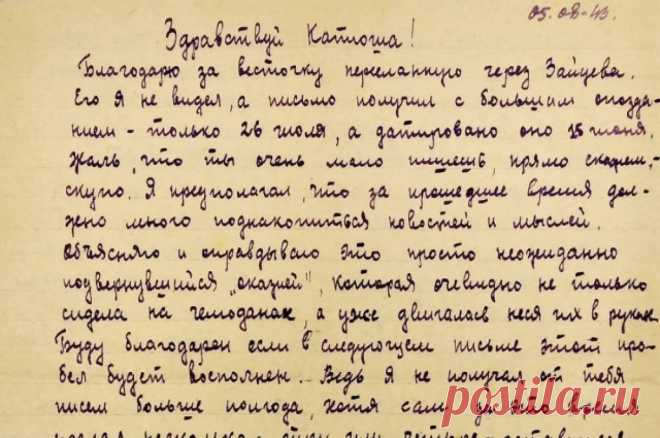 05.08-43.
Здравствуй Катюша!
Благодарю за весточку пересланную через Зайцева.
Его я не видел, а письмо получил с большим опозда-
нием - только 26 июля, а датировано оно 15 июня.
Жаль, что ты очень мало пишешь, прямо скажем,-
скупо. Я предполагал, что за прошедшее время дол-
жно много поднакопиться новостей и мыслей.
Объясняю и оправдываю это просто неожиданно
подвернувшийся „оказией", которая очевидно не только
сидела на чемоданах, а уже двигалась неся их в руках.
Буду благодарен если в следующем письме этот про-
бел будет восполнен. Ведь я не получал от тебя
писем больше полгода, хотя сам за это время
послал несколько -
postila.ru